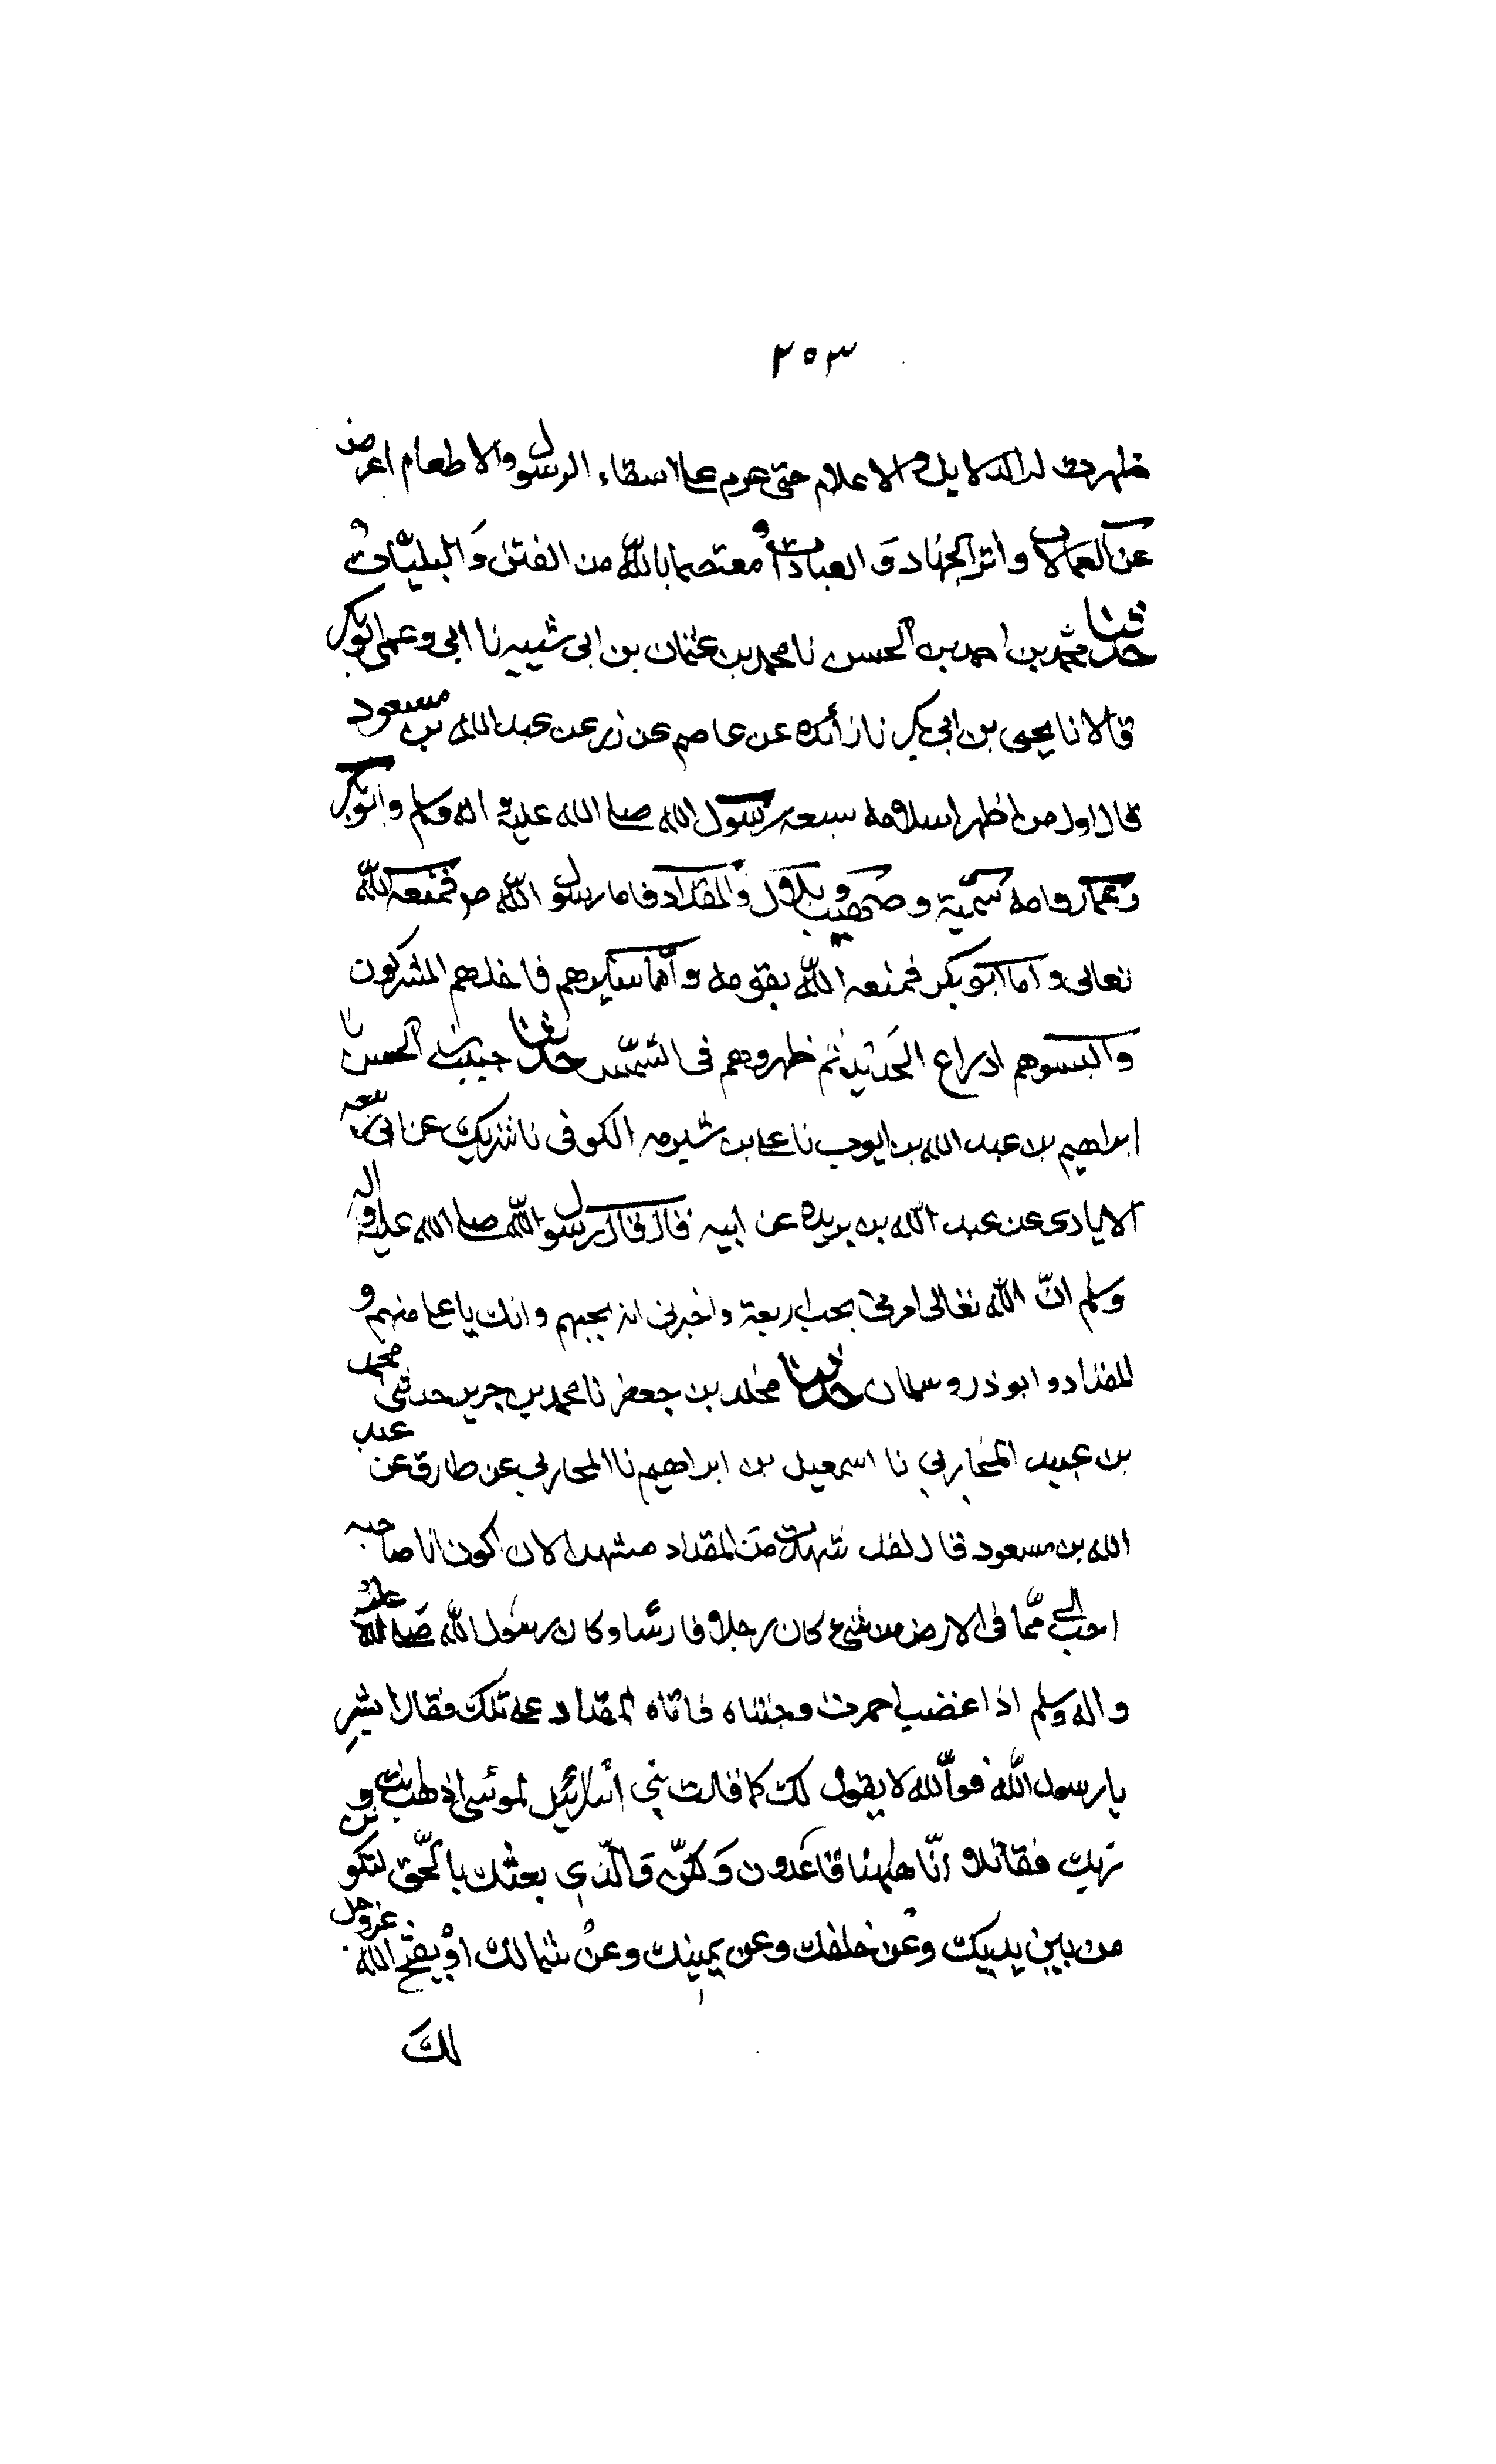 ٢٥٣
ظهرت له الدلايل و الاعلام حتى عزم على اسقاء الرسول والاطعام اعرض
عن العمالات واثر الجهاد وَ العبادات معتصما بالله من الفتن وَ البليّات
حدثنا محمد بن احمد بن الحسن نا محمد بن عثمان بن ابى شيبه نا ابى وعمى ابو بكر
قالا نا يحيى بن ابى بكير نا زائده عن عاصم عن زر عن عبد الله بن مسعود
قال اول من اظهر اسلامه سبعه رسول الله صلى الله عليه و اله وسلم و ابو بكر
و عمار وامه سميّة و صهيب و بلال و المقداد فاما رسول الله ص فمنعه الله
تعالى و اما ابو بكر فمنعه الله بقومه و اما سايرهم فاخذهم المشركون
و البسوهم ادراع الحديد ثم ظهروهم فى الشمس حدثنا حبيب بن الحسن نا
ابراهيم بن عبد الله بن ايوب نا على بن شبرمه الكوفى نا شريك عن ابى ربيعه
الايادى عن عبد الله بن بريده عن ابيه قال قال رسول الله صلى الله عليه و اله
وسلم انّ الله تعالى امرنى بحب اربعة و اخبرنى انه يحبهم و انك يا على منهم و
المقداد و ابو ذر و سلمان حدثنا مخلد بن جعفر نا محمد بن جرير حدثنى محمد
بن عبيد المحاربي نا اسمعيل بن ابراهيم نا المحاربي عن طارق عن عبد
الله بن مسعود قال لقد شهدت من المقداد مشهدا لان اكون انا صاحبه
احب الي ممّا فى الارض من شيء كان رجلا فارسا و كان رسول الله صَلى الله عليه
و اله وسلم اذا غضب احمرت وجنتاه فاتاه المقداد على تلك فقال ابشر
يا رسول الله فو الله لا يقول لك كما قالت بني اسرائيل لموسى اذهب انت و
ربك فقاتلا انّا ههنا قاعدون وَ لكنّ وَ الّذي بعثك بالحقّ لتكونن
من بين يديك وعن خلفك وعن يمينك وعن شمالك او يفتح الله عز وجل
لكَ